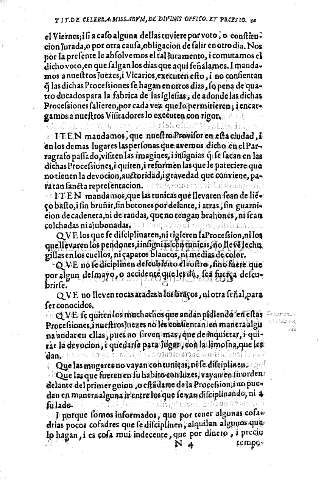 TIT. DE CELEBRA. MISSARVM, DE DIVINO OFFICIO. ET PROCESSIO.
el Viernes; i si a caso alguna dellas tuviere por voto, o constitu-
cion Iurada, o por otra causa, obligacion de salir en otro dia. Nos
por la presente le absolvemos el tal Iuramento, i comutamos el
dicho voto, en que salgan los dias que aqui señalamos. I manda-
mos a nuestros Iuezes, i Vicarios, executen esto, i no consientan
q̃ las dichas Processiones se hagan en otros dias, so pena de qua-
tro ducados para la fabrica de las Iglesias, de adonde las dichas
Processiones salieren, por cada vez que lo permitieren; i encar-
gamos a nuestros Visitadores lo executen con rigor.
ITEN mandamos, que nuestro Provisor en esta ciudad, i
en los demas lugares las personas que avemos dicho en el Par-
ragrafo passado, visiten las imagines, i insignias q̃ se sacan en las
dichas Processiones, i quiten, i reformen las que le pareciere que
no tienen la devocion, auctoridad, i gravedad que conviene, pa-
ra tan sancta representacion.
ITEN mandamos, que las tunicas que llevaren sean de lien-
ço basto, i sin bruñir, sin botones por delante, i atras, sin guarni-
cion de cadeneta, ni de raudas, que no tengan brahones, ni sean
colchadas ni ajubonadas.
QVE los que se disciplinaren, ni rigieren la Procession, ni los
que llevaren los pendones, i insignias cõ tunicas, no llevẽ lechu-
guillas en los cuellos, ni çapatos blancos, ni medias de color.
QVE no se disciplinen descubierto el rostro, sino fuere que
por algun desmayo, o accidente que les dè, sea fuerça descu-
brirse.
QVE no lleven tocas atadas en los braços, ni otra señal, para
ser conocidos.
QVE se quiten los muchachos que andan pidiendo en estas
Processiones, i nuestros Iuezes no les consientan en manera algu-
na andar en ellas, pues no sirven mas, que de inquietar, i qui-
tar la devocion, i quedarse para Jugar, con la limosna, que les
dan.
Que las mugeres no vayan con tunicas, ni se disciplinen.
Que las que fueren en su habito con luzes, vayan en su orden
delante del primer guion, o estãdarte de la Procession, i no pue-
dan en manera alguna ir entre los que se van disciplinando, ni a
su lado.
I porque somos informados, que por tener algunas cofa-
drias pocos cofadres que se disciplinen, alquilan algunos que
lo hagan, i es cosa mui indecente, que por dinero, i precio
N 4 tempo-